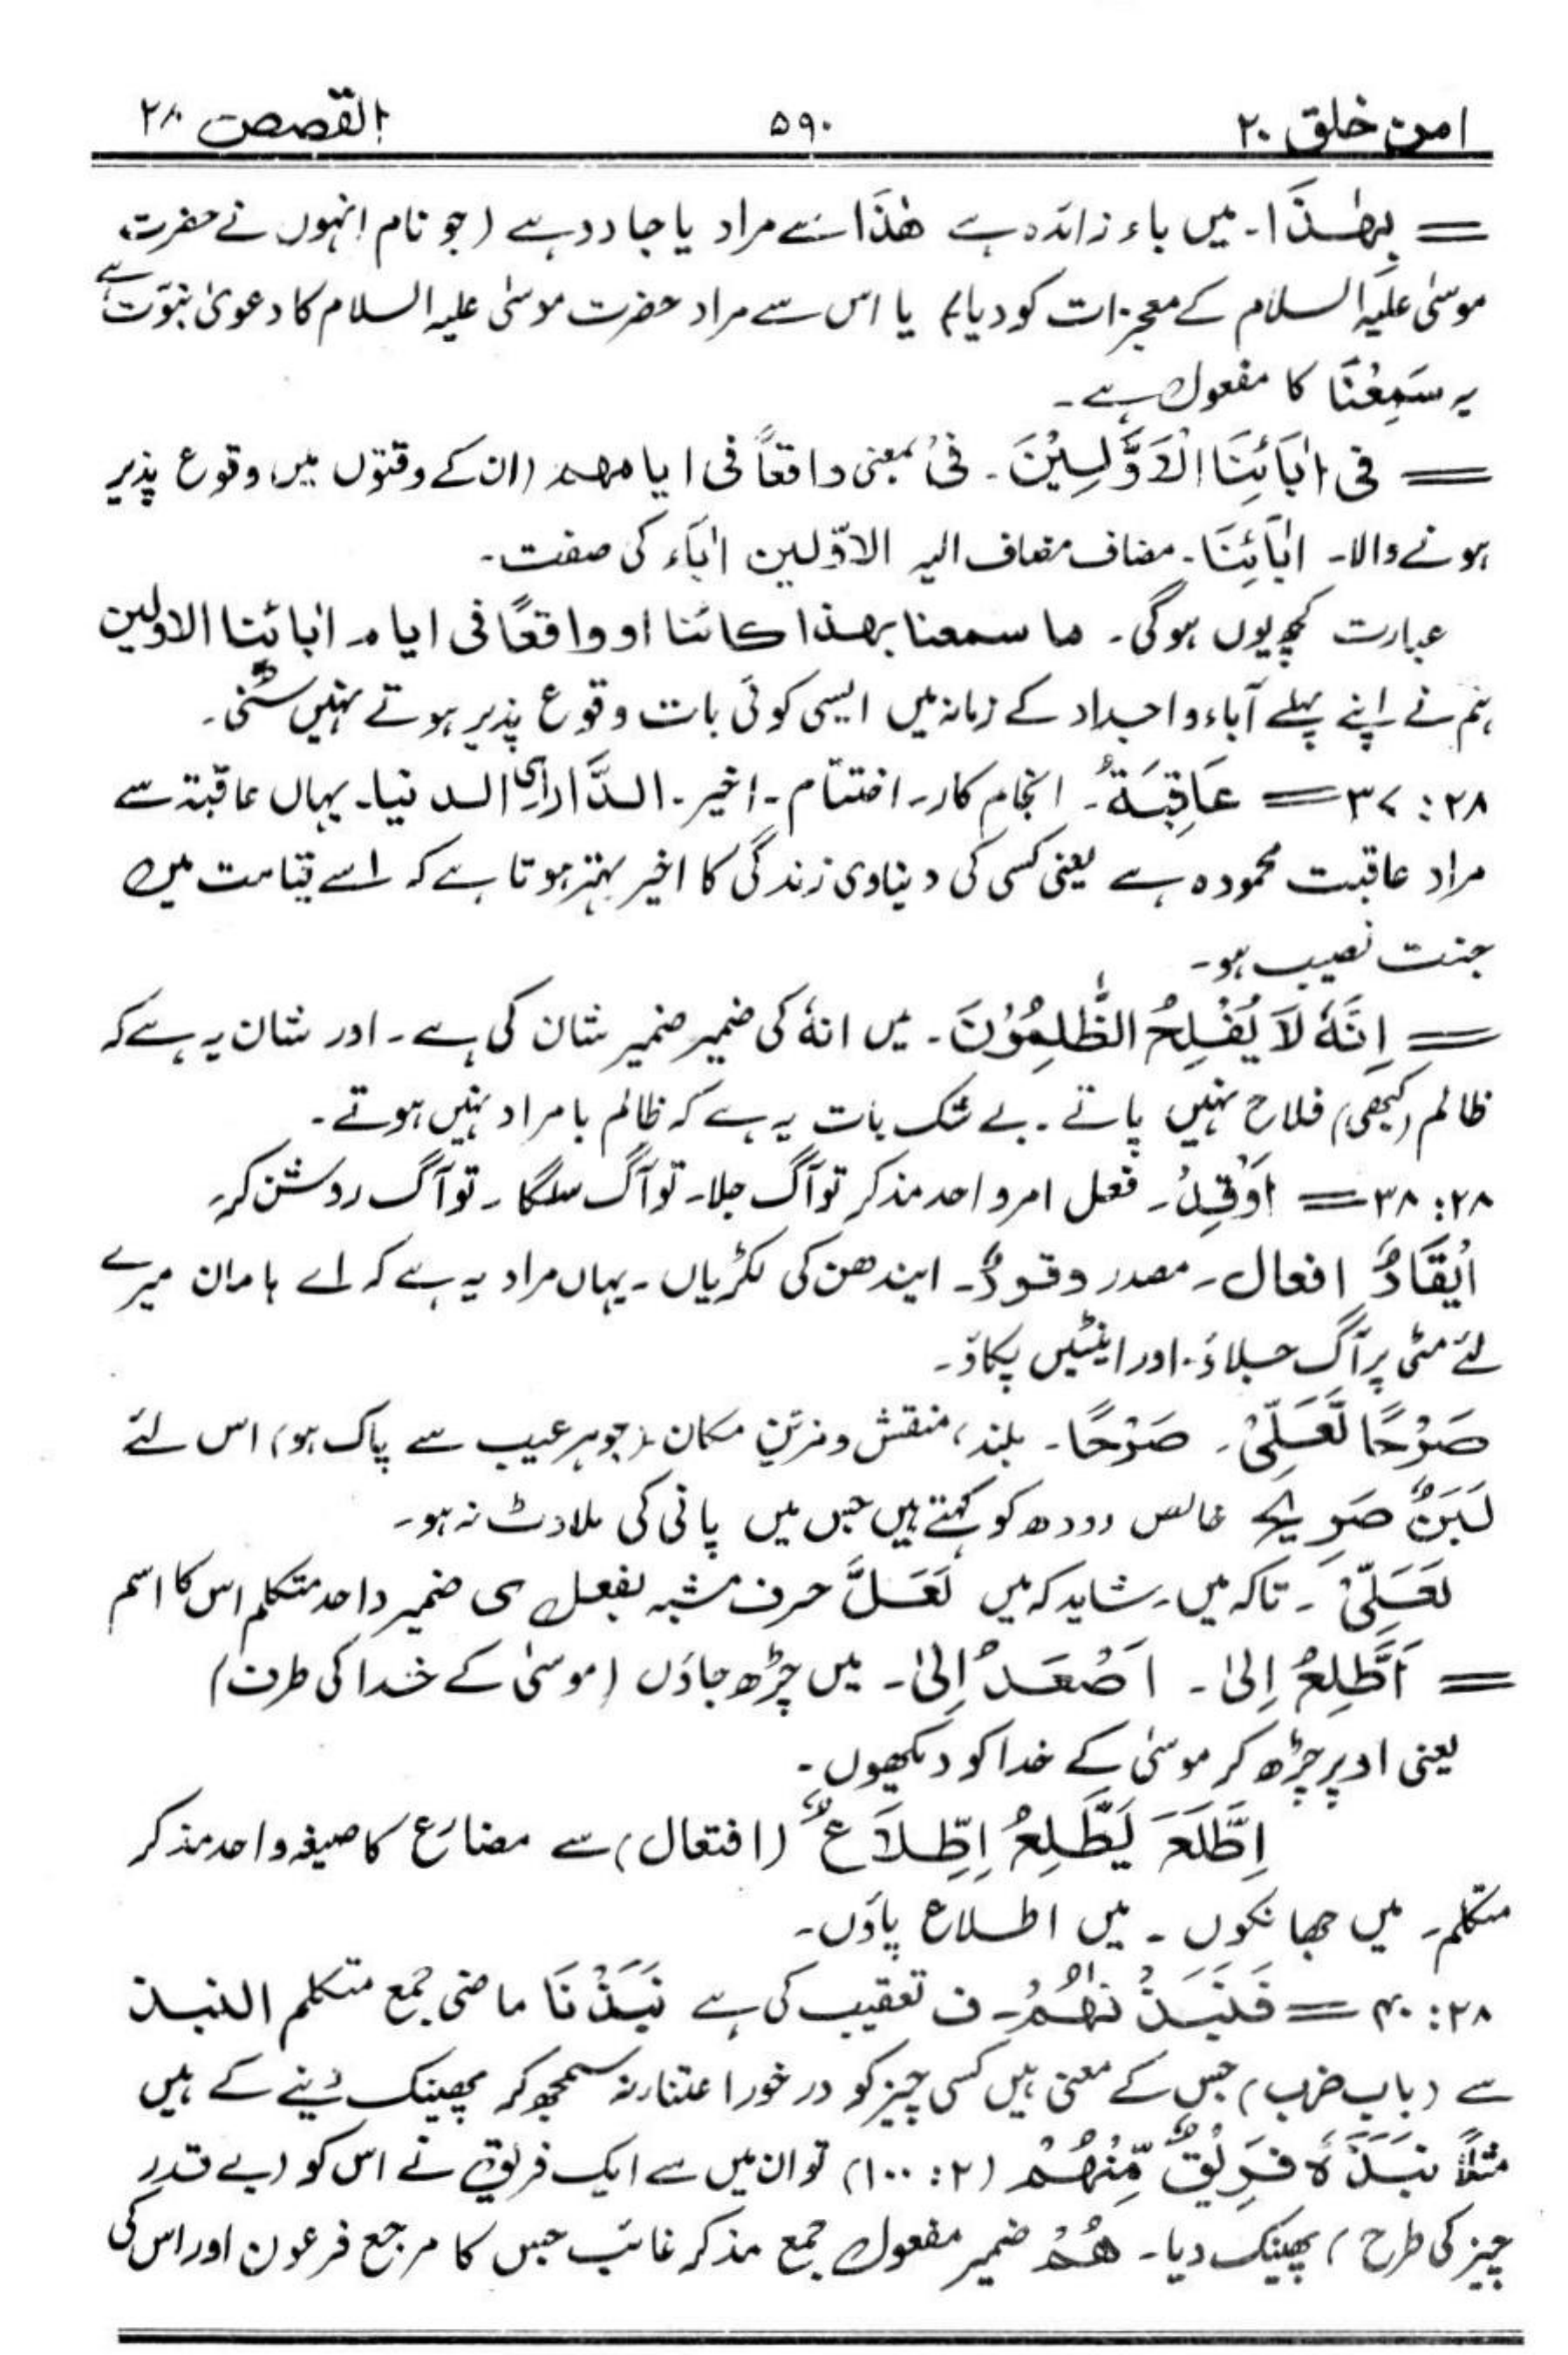 امن خلق ۲۰ ۵۹۰ القصص ۲۸
= بِهٰذَا۔ میں باء زائدہ ہے هٰذَا سے مراد یا جادو ہے (جو نام انہوں نے حضرت
موسیٰ علیہ السلام کے معجزات کو دیا) یا اس سے مراد حضرت موسیٰ علیہ السلام کا دعویٰ نبوّت ہے
یہ سَمِعْنَا کا مفعول ہے۔
= فِی اٰبَآئِنَا الْاَوَّلِیْنَ۔ فِیْ بمعنی واقعاً فی ایامهم (ان کے وقتوں میں وقوع پذیر
ہونے والا۔ اٰبَآئِنَا۔ مضاف مضاف الیہ الاوّلین اٰبَآء کی صفت۔
عبارت کچھ یوں ہوگی۔ ما سمعنا بهذا کائنا او واقعًا فی ایام اٰبائنا الاولین
ہم نے اپنے پہلے آباء و اجداد کے زمانہ میں ایسی کوئی بات وقوع پذیر ہوتے نہیں سُنی۔
۲۸: ۳۷ = عَاقِبَةُ۔ انجام کار۔ اختتام۔ اخیر۔ الدَّار ای الدنیا۔ یہاں عاقبة سے
مراد عاقبت محمودہ ہے یعنی کسی کی دنیاوی زندگی کا اخیر بہتر ہوتا ہے کہ اسے قیامت میں
جنت نصیب ہو۔
= اِنَّهٗ لَا یُفْلِحُ الظّٰلِمُوْنَ۔ میں انهٗ کی ضمیر ضمیر شان کی ہے۔ اور شان یہ ہے کہ
ظالم (کبھی) فلاح نہیں پاتے۔ بے شک بات یہ ہے کہ ظالم بامراد نہیں ہوتے۔
۲۸: ۳۸ = اَوْقِدْ۔ فعل امر واحد مذکر تو آگ جلا۔ تو آگ سلگا۔ تو آگ روشن کر۔
اِیْقَادٌ افعال۔ مصدر وقودٌ۔ ایندھن کی لکڑیاں۔ یہاں مراد یہ ہے کہ اے ہامان میرے
لئے مٹی پر آگ جلاؤ۔ اور اینٹیں پکاؤ۔
صَرْحًا لَّعَلِّیْ۔ صَرْحًا۔ بلند، منقش و مزیّن مکان۔ (جو ہر عیب سے پاک ہو) اس لئے
لَبَنٌ صَرِیْحٌ خالص دودھ کو کہتے ہیں جس میں پانی کی ملاوٹ نہ ہو۔
لَعَلِّیْ۔ تاکہ میں۔ شاید کہ میں لَعَلَّ حرف مشبہ بفعل ی ضمیر واحد متکلم اس کا اسم
= اَطَّلِعُ اِلیٰ۔ اَصْعَدُ اِلیٰ۔ میں چڑھ جاؤں (موسیٰ کے خدا کی طرف)
یعنی اوپر چڑھ کر موسیٰ کے خدا کو دیکھوں۔
اِطَّلَعَ یَطَّلِعُ اِطِّلَاعٌ (افتعال) سے مضارع کا صیغہ واحد مذکر
متکلم۔ میں جھانکوں۔ میں اطلاع پاؤں۔
۲۸: ۴۰ = فَنَبَذْنٰهُمْ۔ ف تعقیب کی ہے نَبَذْنَا ماضی جمع متکلم النبذ
سے (باب ضرب) جس کے معنی ہیں کسی چیز کو درخور اعتنا نہ سمجھ کر پھینک دینے کے ہیں
مثلاً نَبَذَهٗ فَرِیْقٌ مِّنْهُمْ (۲: ۱۰۰) تو ان میں سے ایک فریق نے اس کو (بے قدر
چیز کی طرح) پھینک دیا۔ هُمْ ضمیر مفعول جمع مذکر غائب جس کا مرجع فرعون اور اس کی